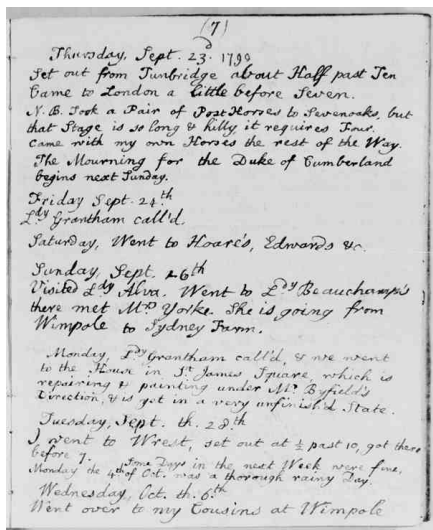 (7)
Thursday, Sept. 23.d 1790
Set out from Tunbridge about Half past Ten
Came to London a little before Seven.
N.B. Took a Pair of Post Horses to Sevenoaks, but
that Stage is so long & hilly it requires Four.
Came with my own Horses the rest of the Way.
The Mourning for the Duke of Cumberland
begins next Sunday.
Friday Sept. 24.th
Ldy Grantham call'd.
Saturday, Went to Hoare's, Edwards &c.
Sunday, Sept. 26th
Visited Ldy Alva. Went to Ldy Beauchamp's
there met Mrs Yorke. She is going from
Wimpole to Sydney Farm.
Monday, Ldy Grantham call'd, & we went
to the House in St James Square, which is
repairing & painting under Mr Byfield's
Direction, & is got in a very unfinish'd State.
Tuesday, Sept. th. 28th
I went to Wrest, set out at ½ past 10, got there
before 7. Some Days in the next Week were fine,
Monday the 4th of Oct. was a thorough rainy Day.
Wednesday, Oct. th. 6th
Went over to my Cousins at Wimpole